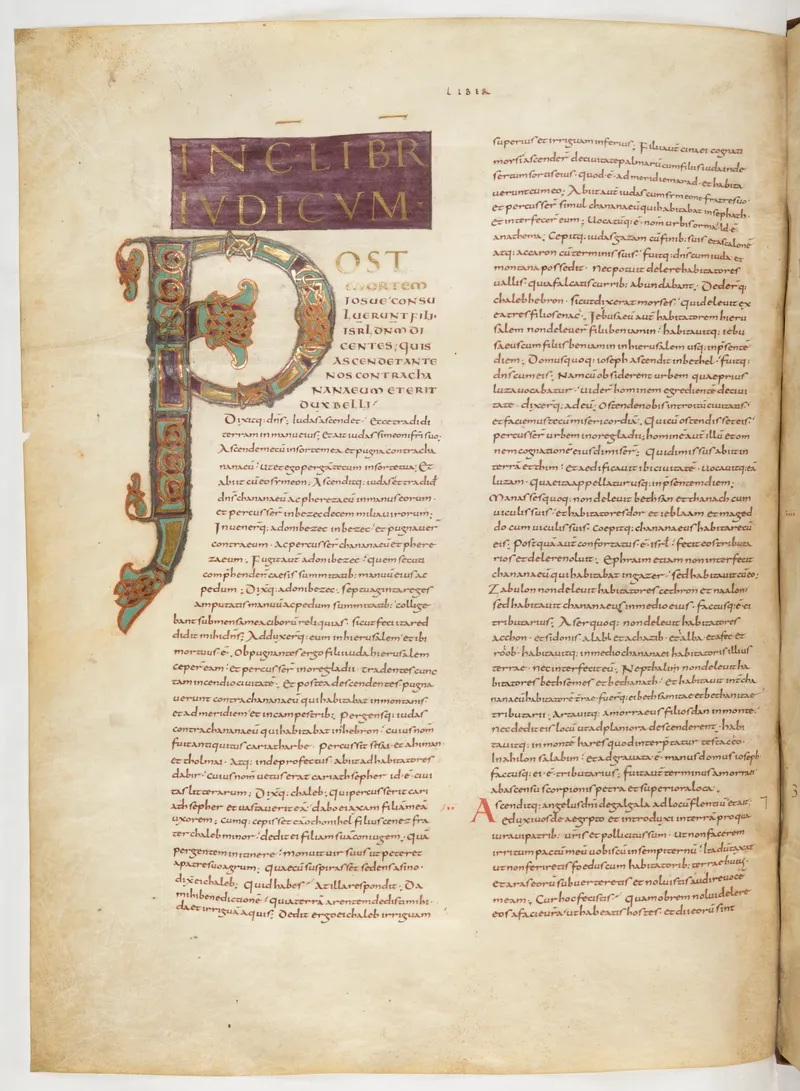 LIBER
INC LIBR
IVDICVM
POST
MORTEM
IOSUE CONSU
LUERUNT FILII
ISRL DNM DI
CENTES; QUIS
ASCENDET ANTE
NOS CONTRA CHA
NANAEUM ET ERIT
DUX BELLI
Dixitq: dns; Iudas ascendet. Ecce tradidi
terram in manu eius; Et ait iudas simeoni fri suo;
Ascende mecū in sorte mea et pugna contra cha
naneū. ut et ego pergā tecum in sorte tua; Et
abiit cū eo symeon; Ascenditq: iudas et tradid
dns chananeū ac pherezeū in manus eorum.
et percusser in bezec decem milia uirorum;
Inuenerq: adonibezec in bezec et pugnauer
contra eum. ac percusser chananeū et phere
zaeum; Fugit aut adonibezec. quem secuti
comphender caesis summitatib: manuū eius ac
pedum; Dixq: adonibezec; Septuaginta reges
amputatis manuū ac pedum summitatib: collige
bant sub mensa mea ciborū reliquias. sicut feci ita red
didit mihi ds; Adduxerq: eum in hierusalem et ibi
mortuus ē. Obpugnantes ergo filii iuda hierusalem
ceper eam et percusser in ore gladii. tradentes cunc
tam incendio ciuitatē; Et postea descendentes pugna
uerunt contra chananeū qui habitabat in montanis
et ad meridiem et in campestrib; Pergensq: iudas
contra chananeū qui habitabat in hebron. cui us nom
fuit antiquitus cariatharbe. percussit sesai et ahiman
et tholmai. Atq: inde profectus abiit ad habitatores
dabir. cuius nom uetus erat cariathsepher id ē ciui
tas litterarum; Dixq: chaleb; Qui percusserit cari
athsepher et uastauerit eā dabo ei axam filiā meā
uxorem; Cumq: cepisset eā othonihel filius cenez fra
ter chaleb minor dedit ei filiam suā coniugem. quā
pergentem in itinere monuit uir suus ut peteret
a patre suo agrum; Quae cū suspirasset sedens asino.
dix ei chaleb; Quid habes. At illa respondit; Da
mihi benedictionē quia terrā arentem dedisti mihi.
da et irriguā aquis; Dedit ergo ei chaleb irriguam
superius et irriguam inferius; Filii aut cinaei cognati
morsi ascender de ciuitate palmarū cum filiis iuda in de
sertum sortis eius. quod ē ad meridiem arad. et habita
uerunt cum eo; Abiit aut iudas cum symeone fratre suo
et percusser simul chananeū qui habitabat in sephath
et interfecer eum; Uocatūq: ē nom urbis horma. id ē
anathema; Cepitq: iudas gazam cū finib: suis et ascalonē
atq: accaron cū terminis suis. fuitq: dns cum iuda et
montana possedit. nec potuit delere habitatores
uallis quia falcatis currib: abundabant; Dederq:
chaleb hebron. sicut dixerat morses. qui deleuit ex
ea tres filios enac; Iebuseū aut habitatorem hieru
salem non deleuer filii beniamin. habitauitq: iebu
saeus cum filiis beniamin in hierusalem usq: in psente
diem; Domus quoq: ioseph ascendit in bethel. fuitq:
dns cum eis; Nam cū obsiderent urbem quae prius
luza uocabatur. uider hominem egredientē de ciui
tate. dixerq: ad eū; Ostende nobis introitū ciuitatis
et faciem tecū misericordiā; Qui cū ostendisset eis
percusser urbem in ore gladii; hominē aut illū et om
nem cognationē eius dimiser; Qui dimissus abiit in
terrā etthim et aedificauit ibi ciuitatē. uocauitq: eā
luzam. quae ita appellatur usq: in psentem diem;
Manasses quoq: non deleuit bethsan et thanach cum
uiculis suis. et habitatores dor et ieblaam et maged
do cum uiculis suis. Coepitq: chananeus habitare cū
eis; Postquā aut confortatus ē isrl. fecit eos tributa
rios et delere noluit; Ephraim etiam non interfecit
chananeū qui habitabat in gazer. sed habitauit cū eo;
Zabulon non deleuit habitatores cetron et naalon.
sed habitauit chananeus in medio eius. factusq: ē ei
tributarius; Aser quoq: non deleuit habitatores
acchon. et sidonis alab et achazib. et alba et afec et
roob. habitauitq: in medio chananei habitatoris illius
terrae. nec interfecit eū; Nepthalim non deleuit ha
bitatores bethsemes et bethanach. et habitauit int cha
naneū habitatorē terrae. fuerq: ei bethsamitae et bethanitae
tributarii; Artauitq: amorraeus filios dan in monte.
nec dedit eis locū ut ad planiora descenderent. habi
tauitq: in monte hares quod interpretatur testaceo.
In ahilon et salabim et adgrauata ē manus domus ioseph
factusq: ei ē tributarius; Fuit aut terminus amorraei
ab ascensu scorpionis petra et superiora loca;
Ascenditq: angelus dni de galgala ad locū flentiū et ait.
Eduxi uos de aegypto et introduxi in terrā pro qua
iuraui patrib: uris et pollicitus sum. ut non facerem
irritum pactū meū uobiscū in sempiternū. Ita dū taxat
ut non feriretis foedus cum habitatorib: terrae huius.
et aras eorū subuerteretis et noluistis audire uocē
meam; Cur hoc fecistis. Quamobrem nolui delere
eos a facie urā. ut habeatis hostes. et dii eorū sint